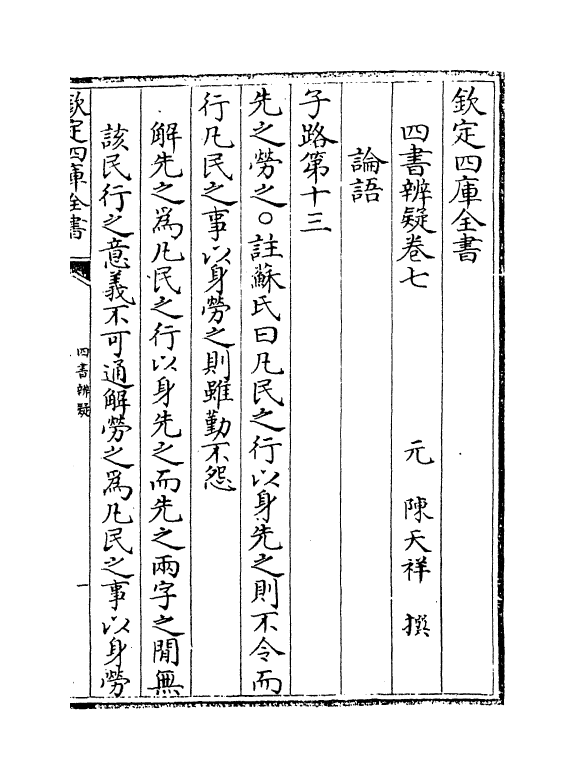 欽定四庫全書
四書辨疑卷七　元　陳天祥　撰
論語
子路第十三
先之勞之○註蘇氏曰凡民之行以身先之則不令而
行凡民之事以身勞之則雖勤不怨
解先之為凡民之行以身先之而先之兩字之閒無
該民行之意義不可通解勞之為凡民之事以身勞
欽定四庫全書
四書辨疑
一